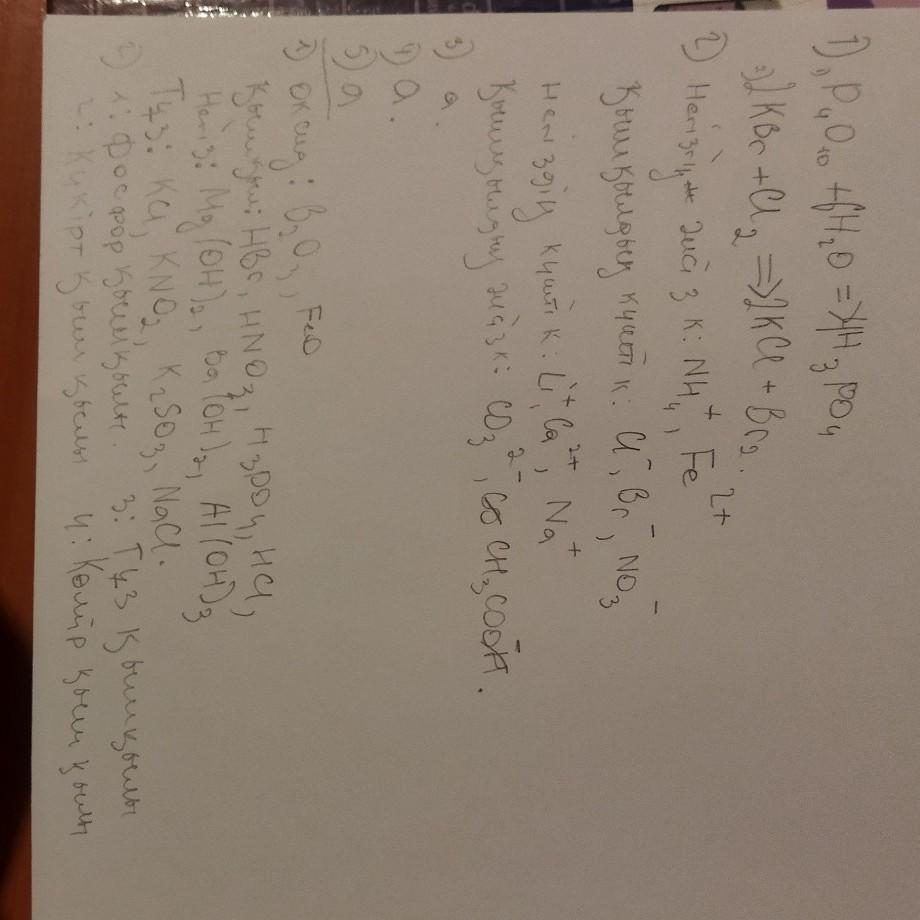 1) P₄O₁₀ + 6H₂O => 4H₃PO₄
=> 2KBr + Cl₂ => 2KCl + Br₂.
2) Негіздің әлсіз к: NH₄⁺, Fe²⁺
Қышқылдың күшті к: Cl⁻, Br⁻, NO₃⁻
Негіздің күшті к: Li⁺, Ca²⁺, Na⁺
Қышқылдың әлсіз к: CO₃²⁻, CH₃COO⁻.
3) a.
4) a.
5) a
1) Оксид: B₂O₃, FeO
Қышқыл: HBr, HNO₃, H₃PO₄, HCl,
Негіз: Mg(OH)₂, Ba(OH)₂, Al(OH)₃
Тұз: KCl, KNO₂, K₂SO₃, NaCl.
2) 1: Фосфор қышқылы. 3: Тұз қышқылы
2: Күкірт қышқылы 4: Көмір қышқылы